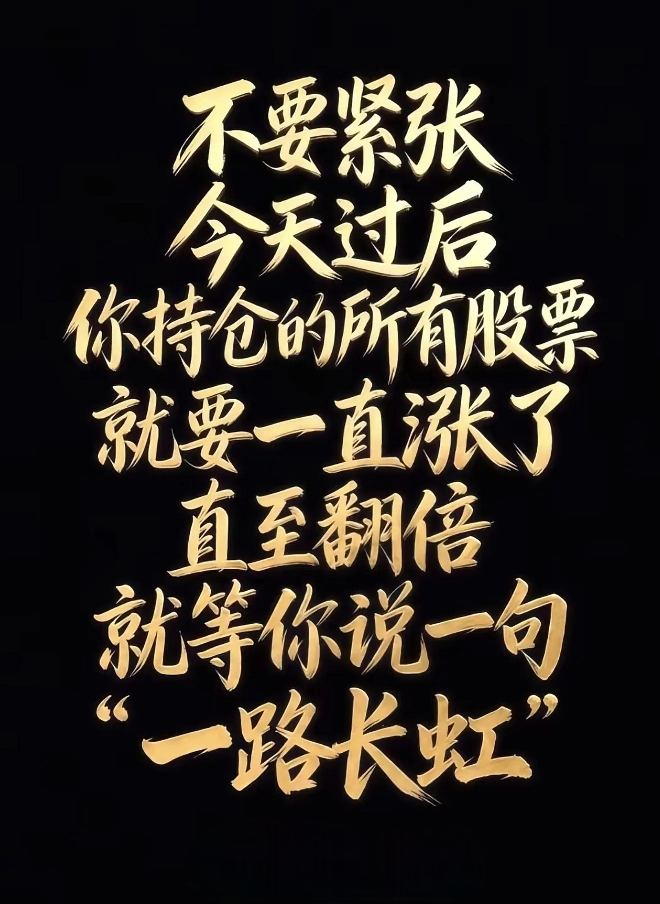 不要紧张
今天过后
你持仓的所有股票
就要一直涨了
直至翻倍
就等你说一句
“一路长虹”